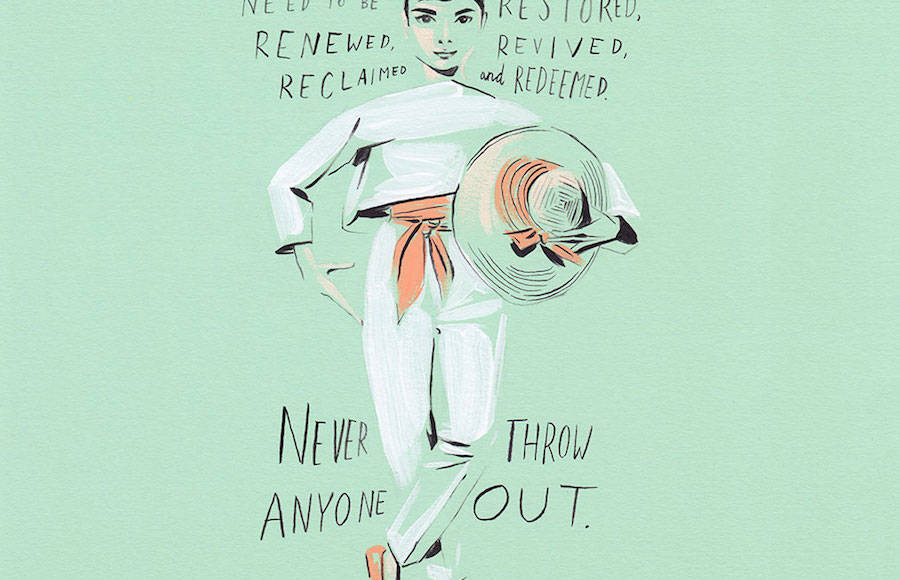 NEED TO BE RESTORED,
RENEWED, REVIVED,
RECLAIMED and REDEEMED.
NEVER THROW
ANYONE OUT.